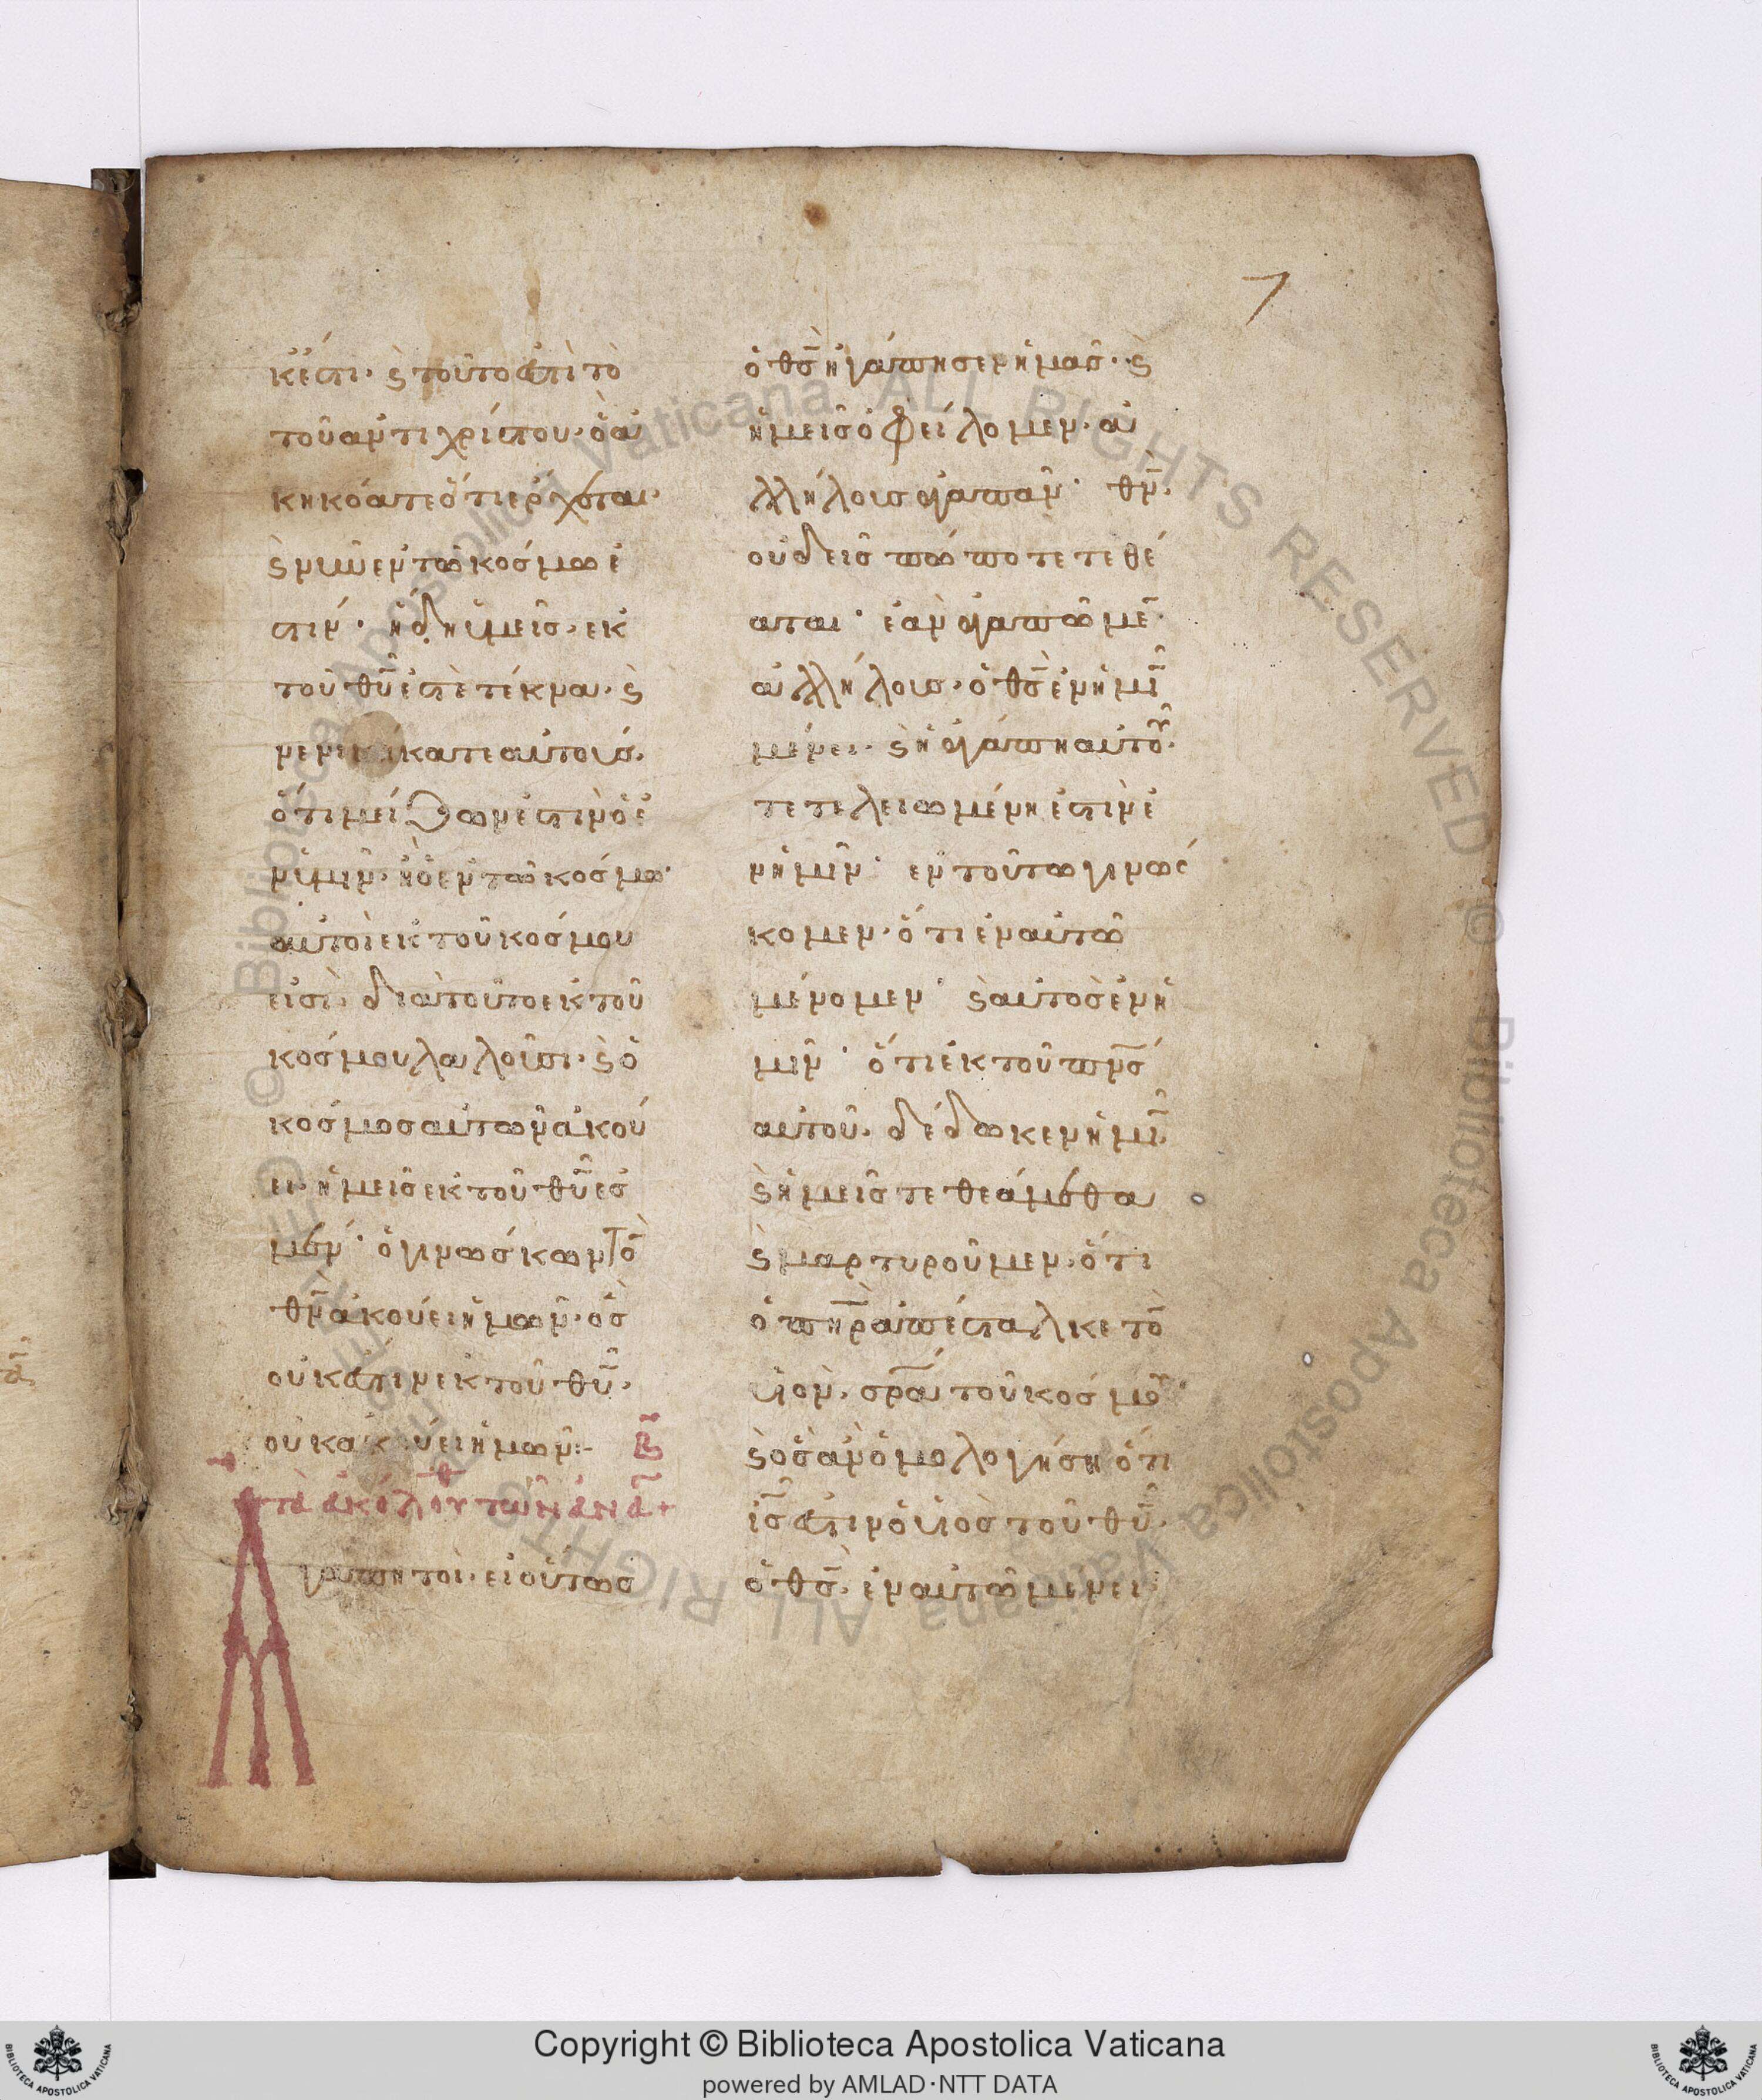 7
κἔστι· ϛ̀ τοῦτο ἐστὶ τὸ
τοῦ ἀντιχρίστου· ὃ ἀ
κηκόατε ὅτι ἔρχεται·
ϛ̀ νῦν ἐν τῶ κόσμω ἐ
στιν· ἤδη ὑμεῖς· ἐκ
τοῦ θῦ ἐστὲ τέκνα· ϛ̀
νενικήκατε αὐτούς·
ὅτι μείζων ἐστὶν ὁ ἐ
ν ὑμῖν· ἢ ὁ ἐν τῶ κόσμω·
αὐτοὶ ἐκ τοῦ κόσμου
εἰσὶ· διὰ τοῦτο ἐκ τοῦ
κόσμου λαλοῦσι· ϛ̀ ὁ
κόσμος αὐτῶν ἀκού
ει· ἡμεῖς ἐκ τοῦ θῦ ἐσ
μέν· ὁ γινώσκων τὸ
θν̄ ἀκούει ἡμῶν· ὃς
οὐκ ἔστιν ἐκ τοῦ θῦ·
οὐκ ἀκούει ἡμῶν:– Β
τὰ ἀκόλουθ τῶν ἀνα +
Ἀγαπητοὶ· εἰ οὕτως
ὁ θς̄ ἠγάπησεν ἡμᾶς· ϛ̀
ἡμεῖς ὀφείλομεν· ἀ
λλήλοις ἀγαπᾶν· θν̄·
οὐδεὶς πώποτε τεθέ
αται· ἐὰν ἀγαπῶμε̄·
ἀλλήλοις· ὁ θς̄ ἐν ἡμῖ
μένει· ϛ̀ ἡ ἀγάπη αὐτοῦ·
τετελειωμένη ἐστὶν ἐ
ν ἡμῖν· ἐν τούτω γινώσ
κομεν· ὅτι ἐν αὐτῶ
μένομεν· ϛ̀ αὐτὸς ἐν ἡ
μῖν· ὅτι ἐκ τοῦ πνς̄
αὐτοῦ· δέδωκεν ἡμῖ·
ϛ̀ ἡμεῖς τεθεάμεθα
ϛ̀ μαρτυροῦμεν· ὅτι
ὁ πηρ̄ ἀπέσταλκε τὸ
υἱὸν· σρ̄α τοῦ κόσμου·
ϛ̀ ὃς ἂν ὁμολογήση ὅτι
ἰς̄ ἐστιν ὁ υἱὸς τοῦ θῦ·
ὁ θς̄· ἐν αὐτῶ μένει·
Copyright © Biblioteca Apostolica Vaticana
powered by AMLAD·NTT DATA